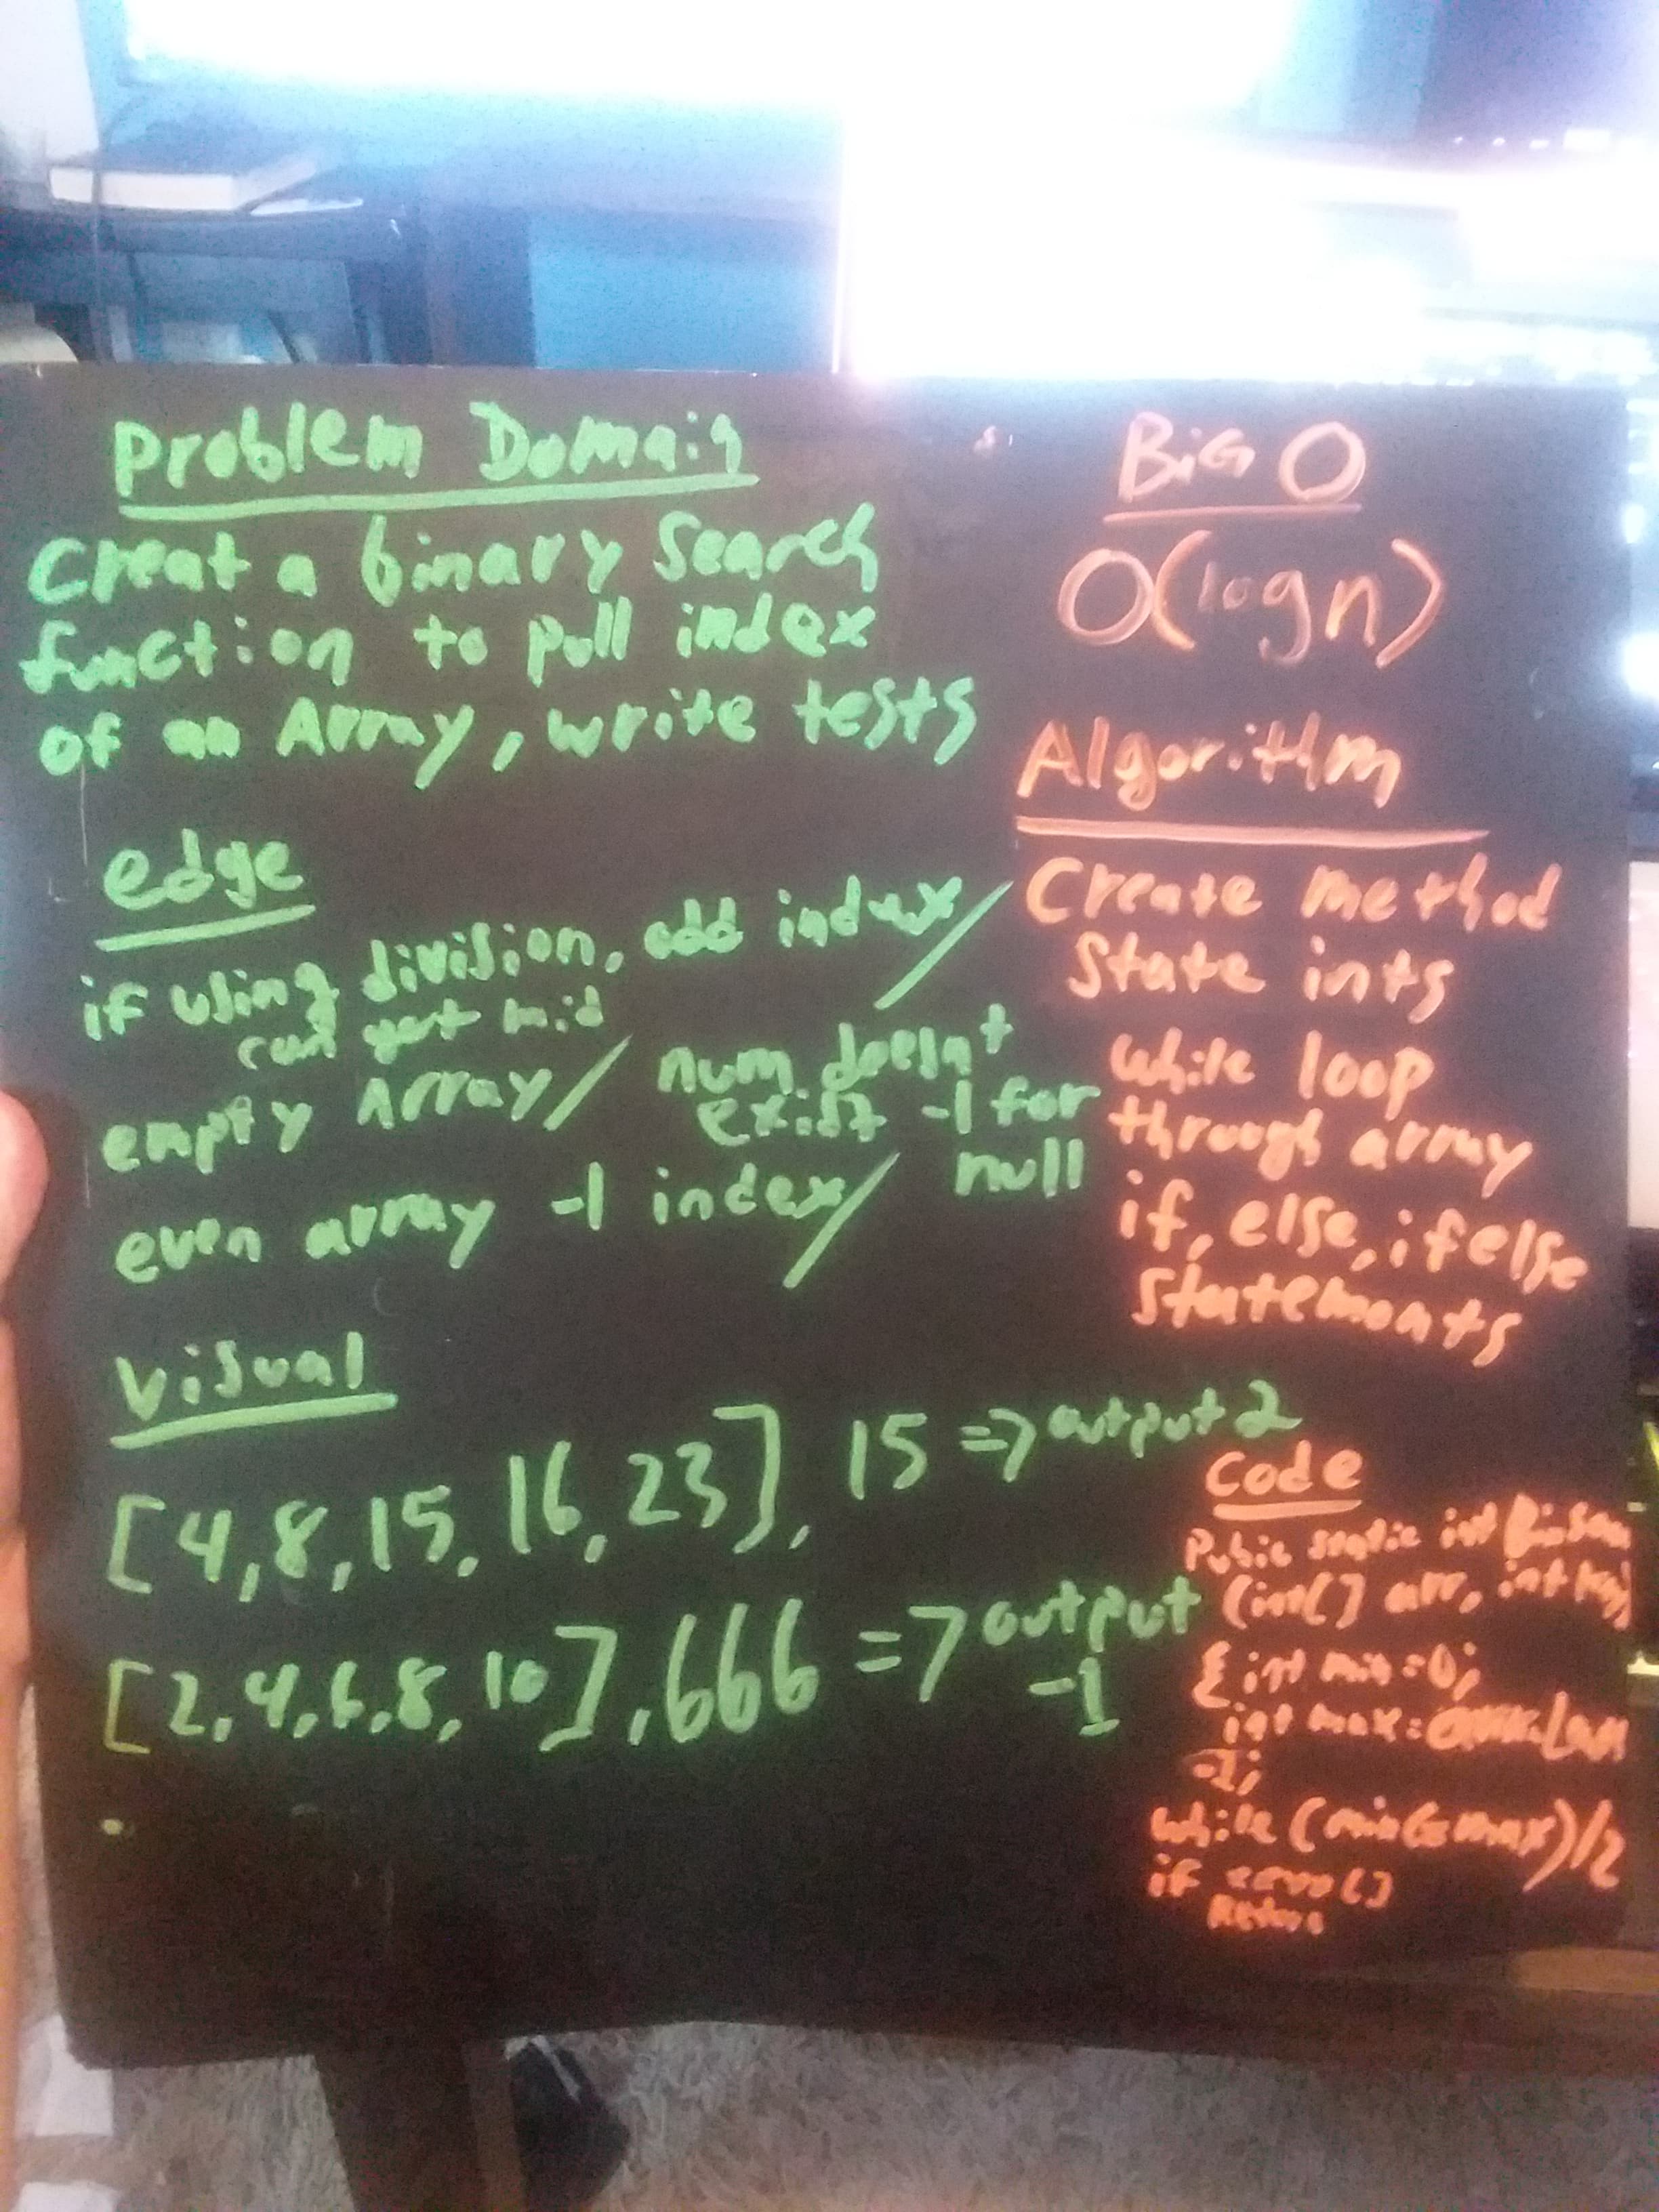 Problem Domain
Creat a binary Search
function to pull index
of an Array, write tests
edge
if using division, odd index/
can get mid
empty Array/ num doesnt
exist -1 for
null
even array -1 index/
Visual
[4,8,15,16,23], 15 => output 2
[2,4,6,8,10], 666 => output
-1
BiG O
O(log n)
Algorithm
Create method
State ints
while loop
through array
if, else, if else
statements
Code
Public static int
(int[] arr, int key)
{int min = 0;
int max =
-1;
while (min<=max)/2
if
Return